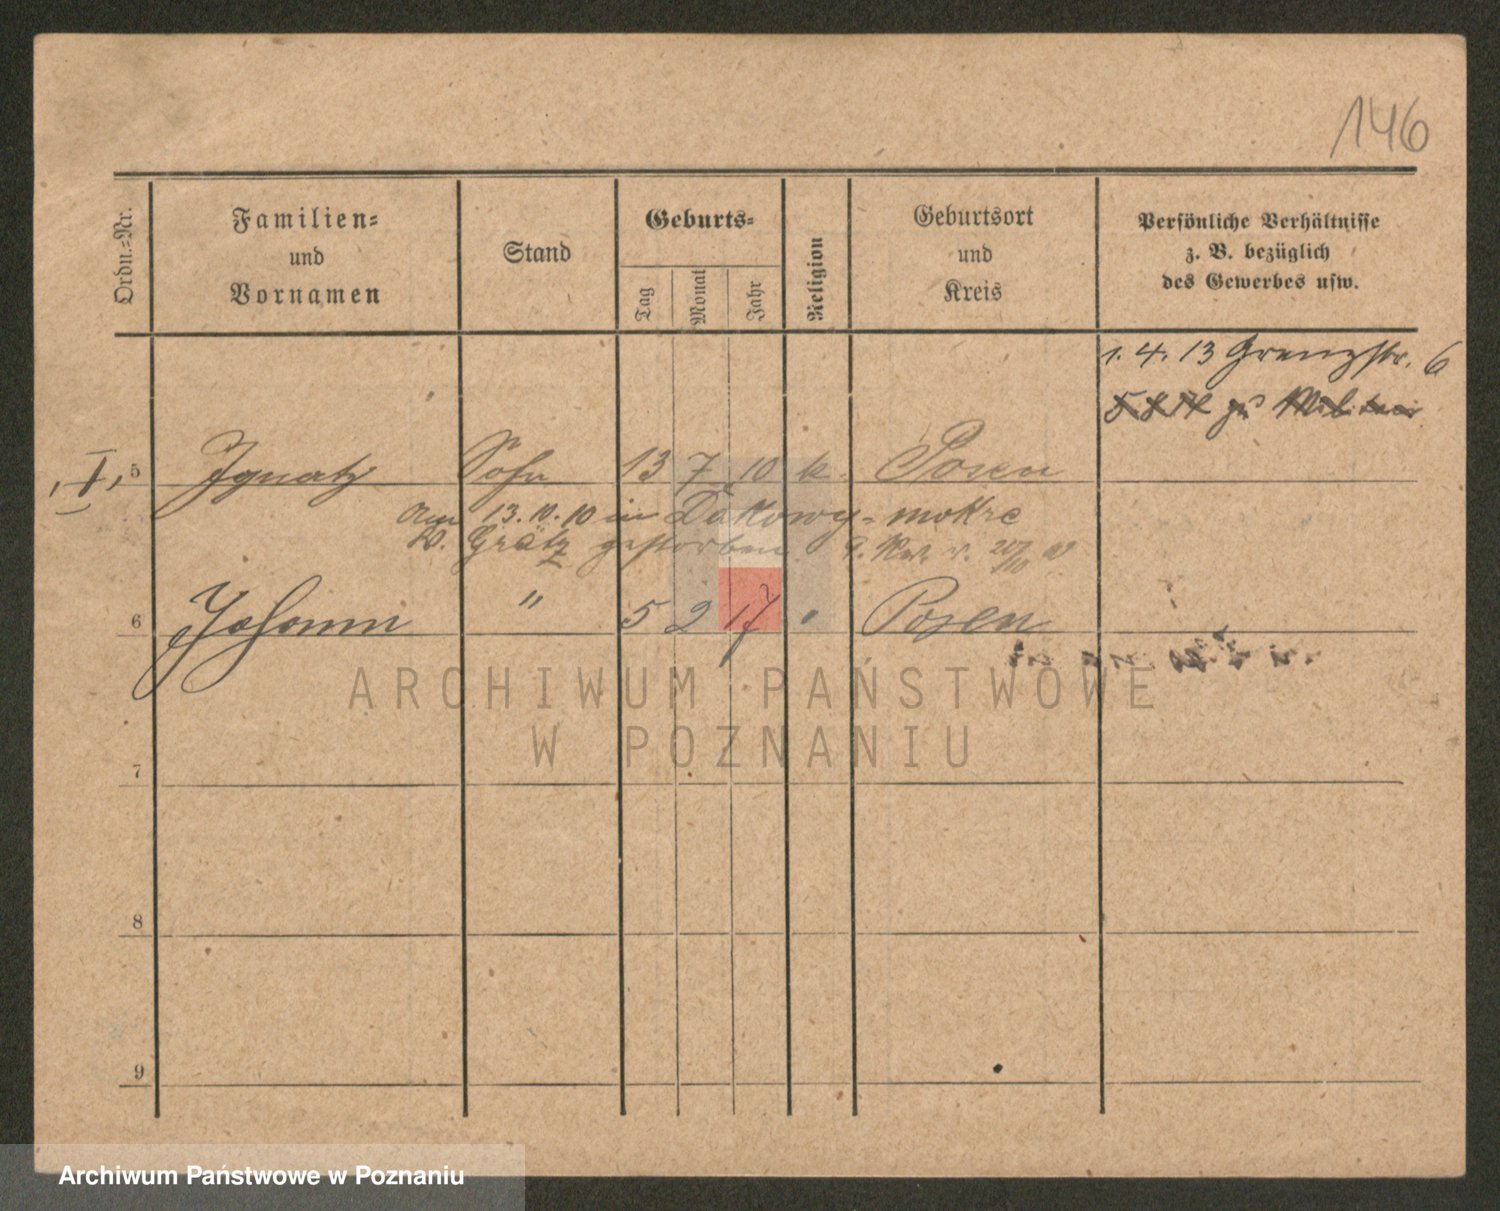 146
Ordn.=Nr.
Familien=
und
Vornamen
Stand
Geburts=
Tag
Monat
Jahr
Religion
Geburtsort
und
Kreis
Persönliche Verhältnisse
z. B. bezüglich
des Gewerbes usw.
1. 4. 13 Grenzstr. 6
zu Militär
I, 5 Ignatz Sohn 13 7 10 k. Posen
Am 13.10.10 in Dakowy-mokre
K. Grätz gestorben
6 Johann " 5 2 17 " Posen
ARCHIWUM PAŃSTWOWE
W POZNANIU
7
8
9
Archiwum Państwowe w Poznaniu